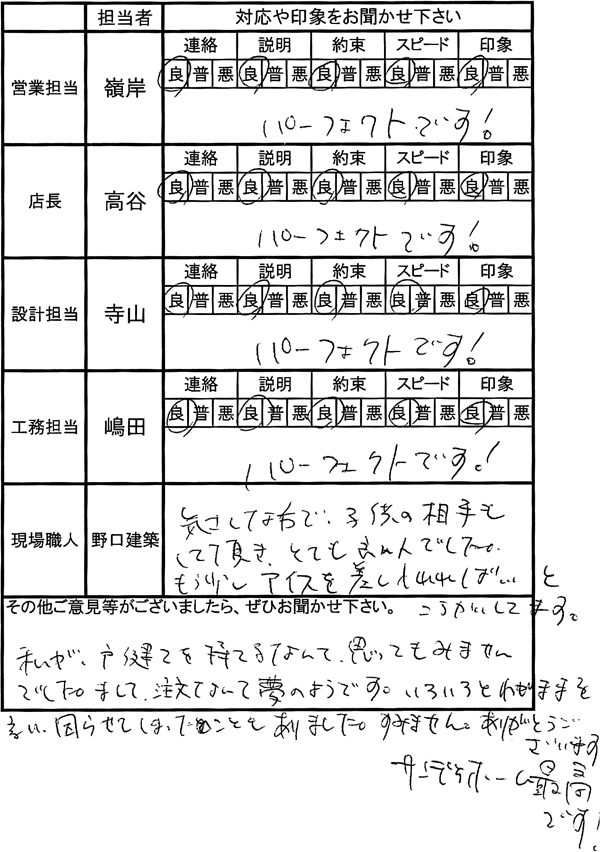 担当者 対応や印象をお聞かせ下さい
営業担当 嶺岸
連絡 説明 約束 スピード 印象
良 普 悪 良 普 悪 良 普 悪 良 普 悪 良 普 悪
パーフェクトです!
店長 高谷
連絡 説明 約束 スピード 印象
良 普 悪 良 普 悪 良 普 悪 良 普 悪 良 普 悪
パーフェクトです!
設計担当 寺山
連絡 説明 約束 スピード 印象
良 普 悪 良 普 悪 良 普 悪 良 普 悪 良 普 悪
パーフェクトです!
工務担当 嶋田
連絡 説明 約束 スピード 印象
良 普 悪 良 普 悪 良 普 悪 良 普 悪 良 普 悪
パーフェクトです!
現場職人 野口建築
気さくな方で、子供の相手も
して頂き、とても良い人でした。
もう少しアイスを差し入れればよかったと
その他ご意見等がございましたら、ぜひお聞かせ下さい。
こうかいしてます。
私が、戸建てを持てるなんて、思ってもみません
でした。まして、注文なんて夢のようです。いろいろとわがままを
言い、困らせてしまったこともありました。すみません。ありがとうご
ざいます
サンデイホーム最高
です!